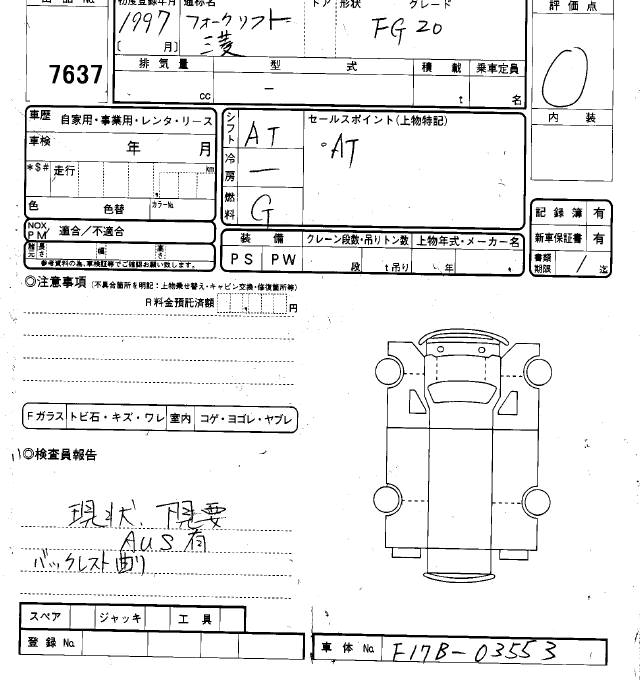 出品No. 初度登録年月 通称名 ドア 形状 グレード 評価点
1997 フォークリフト FG20
[ 月] 三菱
7637 排気量 型式 積載 乗車定員 0
cc － t 名
車歴 自家用・事業用・レンタ・リース シフト AT セールスポイント(上物特記) 内装
車検 年 月 ・AT
*$# 走行 km 冷房 －
色 色替 カラーNo. 燃料 G 記録簿 有
NOX PM 適合／不適合 装備 クレーン段数・吊りトン数 上物年式・メーカー名 新車保証書 有
諸元 長さ 幅 高さ PS PW 段 t吊り 年 書類期限 / 迄
参考資料の為、車検証等でご確認お願い致します。
◎注意事項 (不具合箇所を明記：上物乗せ替え・キャビン交換・修復箇所等)
R料金預託済額 円
Fガラス トビ石・キズ・ワレ 室内 コゲ・ヨゴレ・ヤブレ
◎検査員報告
現状、下見要
AUS有
バックレスト曲り
スペア ジャッキ 工具
登録No. 車体No. F17B-03553